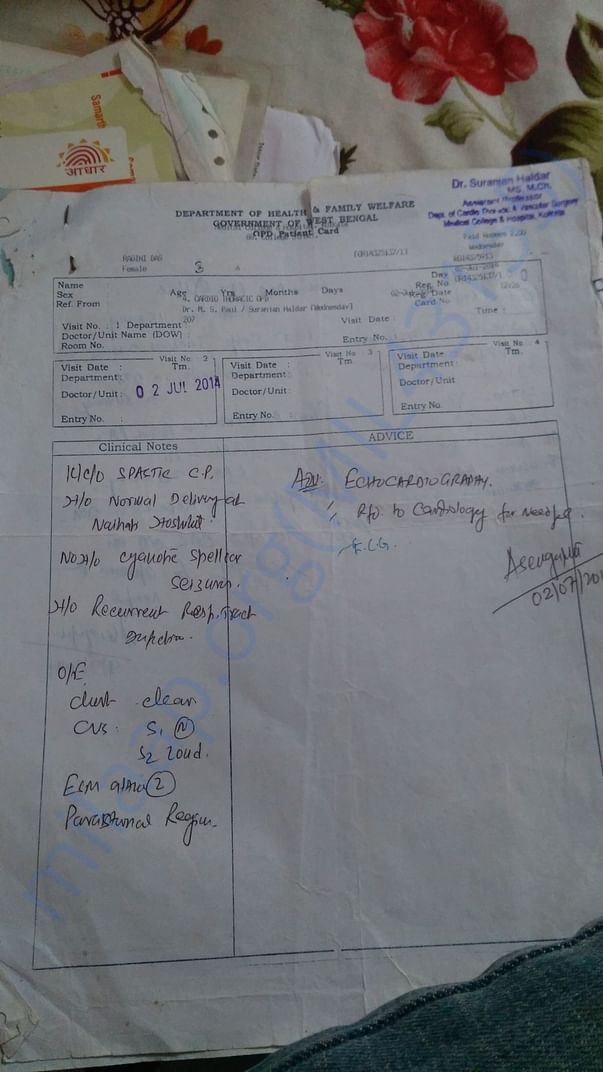 Samarth
आधार
Dr. Suranjan Haldar
MS, M.Ch.
Assistant Professor
Dept. of Cardio Thoracic & Vascular Surgery
Medical College & Hospital, Kolkata
DEPARTMENT OF HEALTH & FAMILY WELFARE
GOVERNMENT OF WEST BENGAL
OPD Patient Card
Wednesday
RAGINI DAS
Female 3
Name
Sex Age Yrs Months Days
Ref. From
Day
Reg. No
Date
Card No.
4. CARDIO THORACIC OPD
Dr. M. S. Paul / Suranjan Haldar [Wednesday]
Visit No. : 1 Department 207
Visit Date :
Time :
Doctor/Unit Name (DOW) :
Room No.
Entry No. :
Visit No. 2
Visit Date : Tm.
Department:
Doctor/Unit: 02 JUL 2014
Entry No. :
Visit No 3
Visit Date : Tm
Department:
Doctor/Unit :
Entry No.
Visit No. 4
Visit Date : Tm.
Department :
Doctor/Unit
Entry No.
Clinical Notes
ADVICE
K/C/O SPASTIC C.P.
H/O Normal Delivery at
No H/O cyanotic spell or
seizure.
H/O Recurrent Resp. Tract
O/E
chest clear
CVS: S1 N
S2 loud.
ESM 2
Parasternal Region
Adv: ECHOCARDIOGRAPHY.
Ref. to Cardiology for needful.
E.C.G.
02/07/201
milaap.org